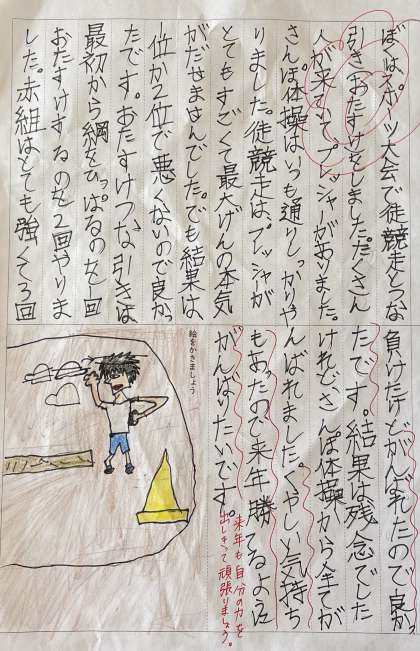 ぼくはスポーツ大会で徒競走とつな
引きおたすけをしました。たくさん
人が来ていてプレッシャーがありました。
さんぽ体操はいつも通りしっかりやん
りました。徒競走は、プレッシャーが
とてもすごくて最大げんの本気
がだせませんでした。でも結果は、
1位か2位で悪くないので良かっ
たです。おたすけつな引きは、
最初から綱をひっぱるのを一回
おたすけするのを2回やりま
した。赤組はとても強くて3回
負けたけどがんばれたので良かっ
たです。結果は残念でした
けれどさんぽ体操から全てが
んばれました。くやしい気持ち
もあったので来年勝てるように
がんばりたいです。
来年も自分の力を
出しきって頑張りましょう。
絵をかきましょう